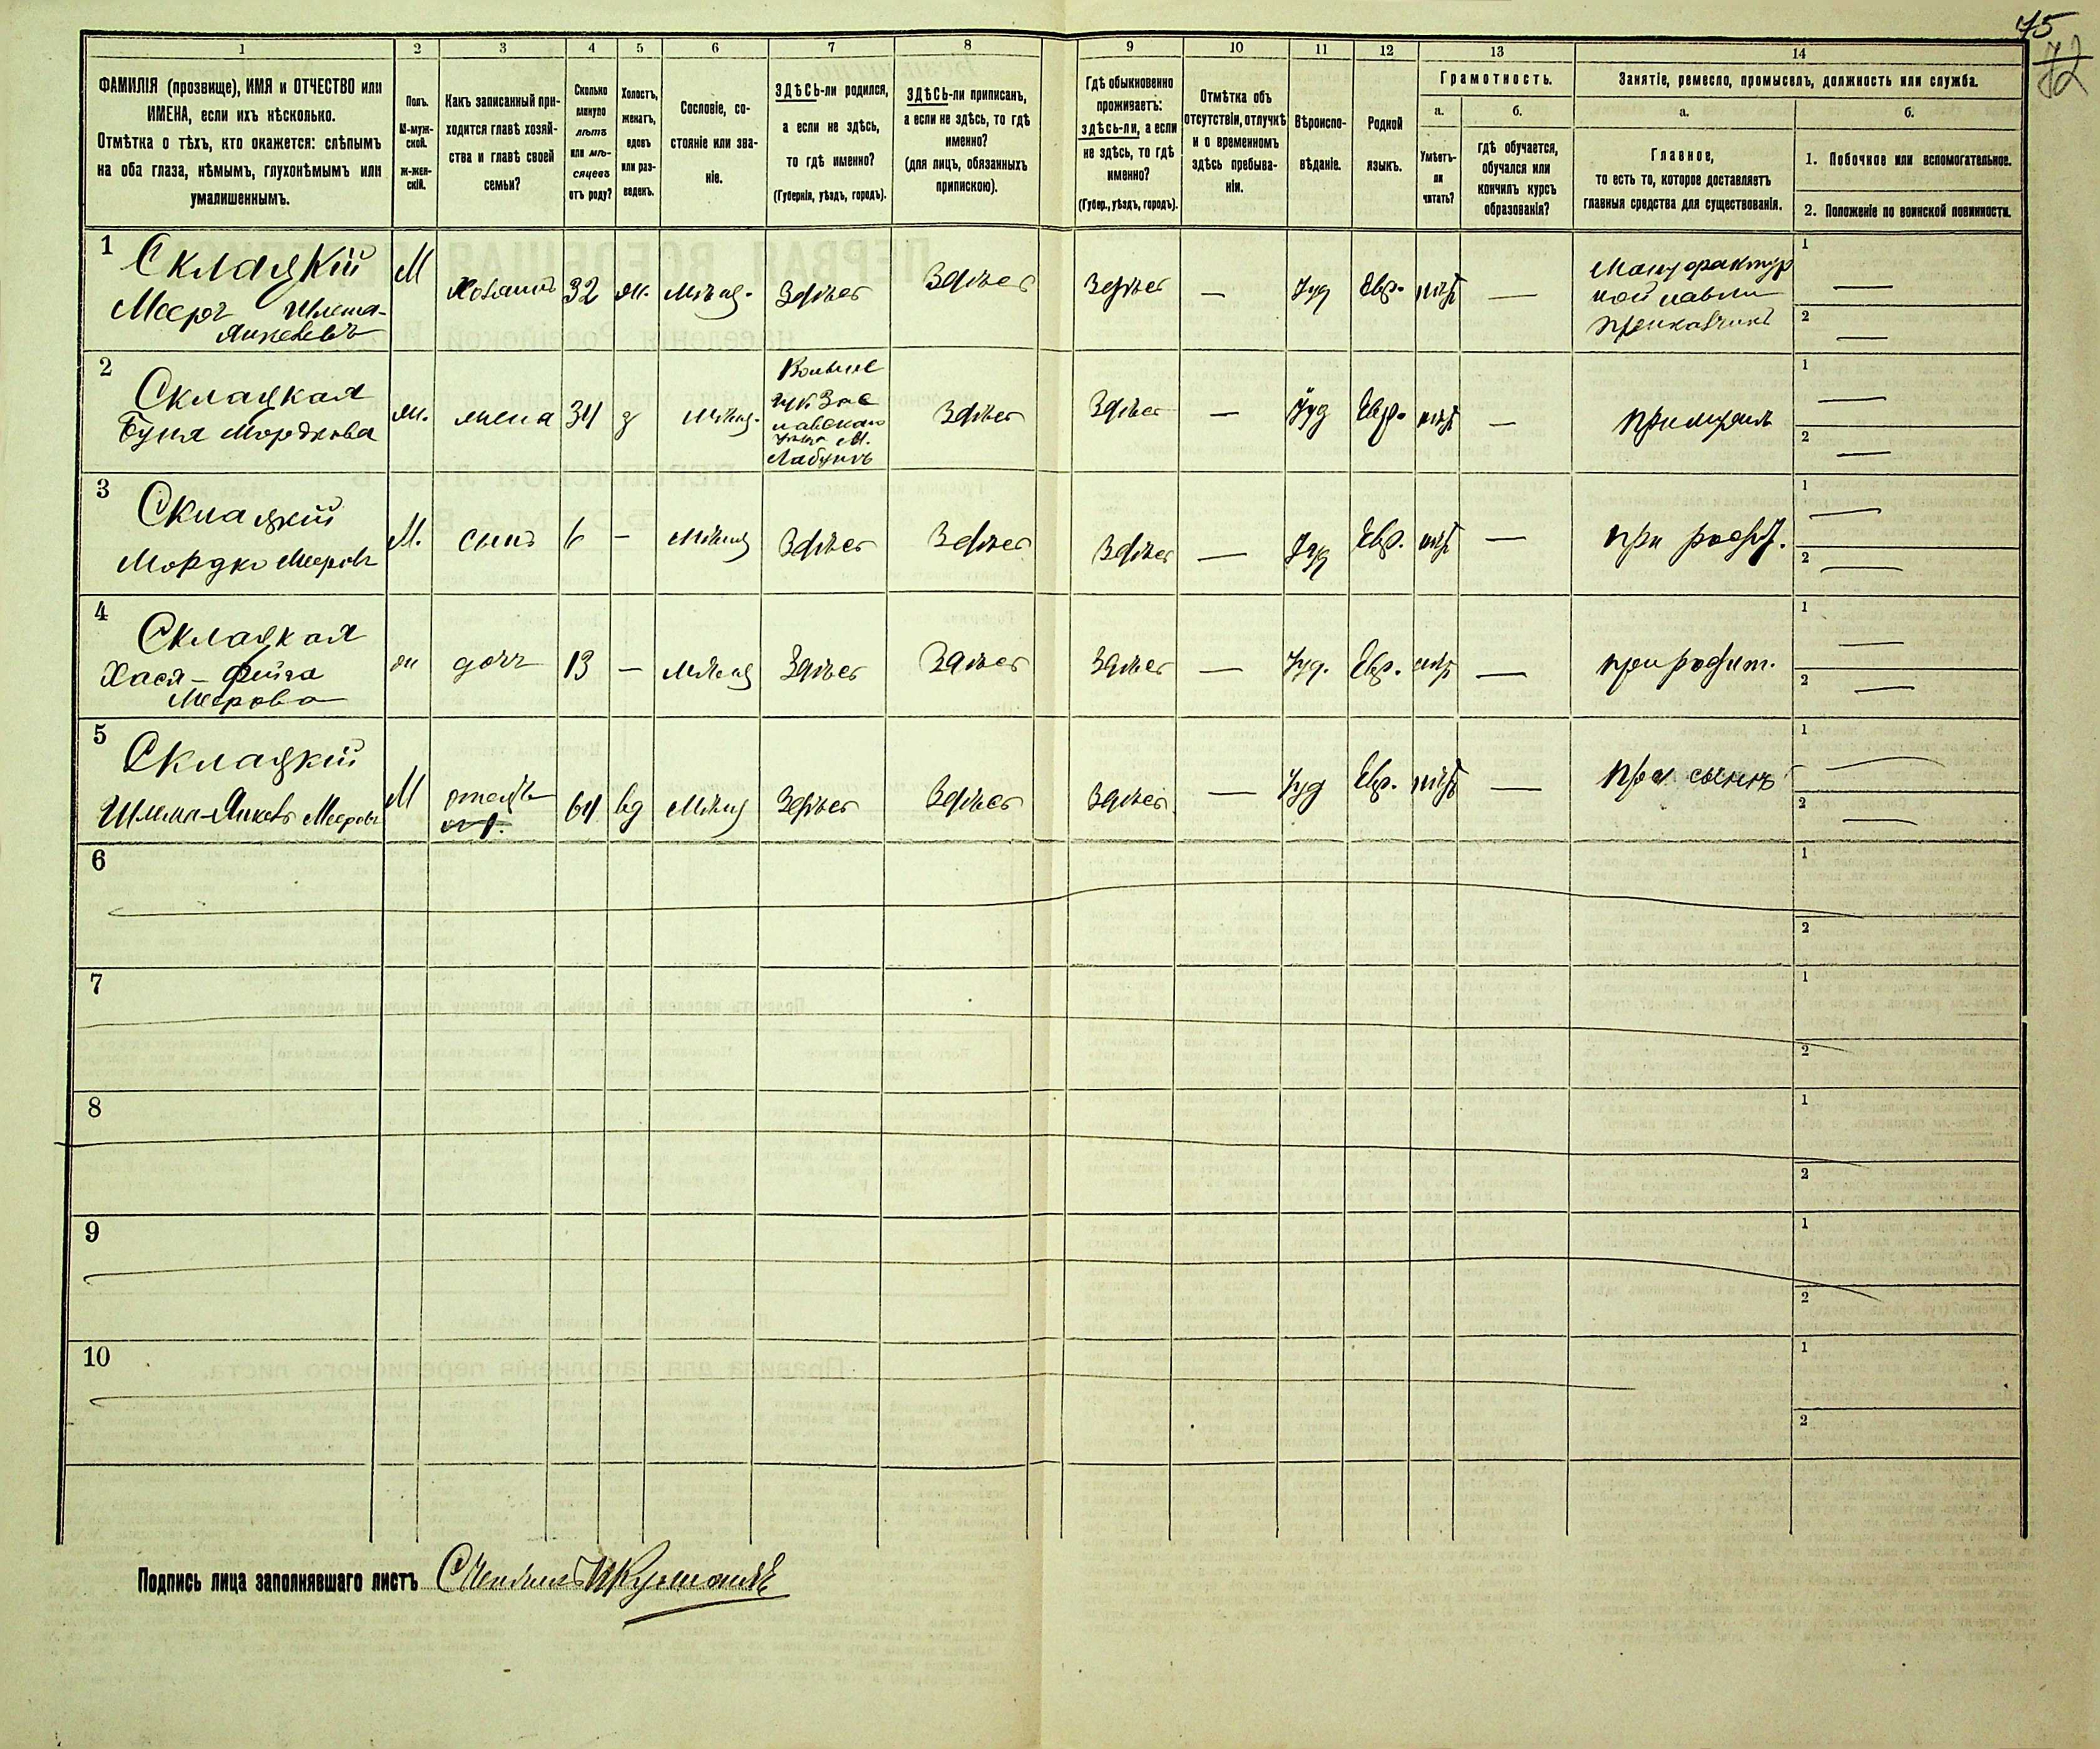 75
72
1 2 3 4 5 6 7 8 9 10 11 12 13 14
ФАМИЛІЯ (прозвище), ИМЯ и ОТЧЕСТВО или
ИМЕНА, если ихъ нѣсколько.
Отмѣтка о тѣхъ, кто окажется: слѣпымъ
на оба глаза, нѣмымъ, глухонѣмымъ или
умалишеннымъ.
Полъ.
М-муж-
ской.
Ж-жен-
скій.
Какъ записанный при-
ходится главѣ хозяй-
ства и главѣ своей
семьи?
Сколько
минуло
лѣтъ
или мѣ-
сяцевъ
отъ роду?
Холостъ,
женатъ,
вдовъ
или раз-
веденъ.
Сословіе, со-
стояніе или зва-
ніе.
ЗДѢСЬ-ли родился,
а если не здѣсь,
то гдѣ именно?
(Губернія, уѣздъ, городъ).
ЗДѢСЬ-ли приписанъ,
а если не здѣсь, то гдѣ
именно?
(для лицъ, обязанныхъ
припискою).
Гдѣ обыкновенно
проживаетъ:
здѣсь-ли, а если
не здѣсь, то гдѣ
именно?
(Губер., уѣздъ, городъ).
Отмѣтка объ
отсутствіи, отлучкѣ
и о временномъ
здѣсь пребыва-
ніи.
Вѣроиспо-
вѣданіе.
Родной
языкъ.
Грамотность.
а.
Умѣетъ-
ли
читать?
б.
гдѣ обучается,
обучался или
кончилъ курсъ
образованія?
Занятіе, ремесло, промыселъ, должность или служба.
а.
Главное,
то есть то, которое доставляетъ
главныя средства для существованія.
б.
1. Побочное или вспомогательное.
2. Положеніе по воинской повинности.
1
Склацкій
Мееръ Шлема-
Янкевевъ
М хозяинъ 32 ж. мѣщ. Здѣсь Здѣсь Здѣсь — Іуд Евр. —
Мануфактур
ной лавки
приказчикъ
1 —
2 —
2
Склацкая
Буня Мордкова
ж. жена 34 з мѣщ.
м.
Лабунь
Здѣсь Здѣсь — Іуд Евр. —
1 —
2 —
3
Склацкій
Мордко Мееровъ
М. сынъ 6 — мѣщ Здѣсь Здѣсь Здѣсь — Іуд Евр. — при родит.
1 —
2 —
4
Склацкая
Хася-Фейга
Меерова
ж дочь 13 — мѣщ Здѣсь Здѣсь Здѣсь — Іуд. Евр. — при родит.
1 —
2 —
5
Склацкій
Шлема-Янкевъ Мееровъ
М отецъ 64 вд мѣщ Здѣсь Здѣсь Здѣсь — Іуд Евр. — при сынѣ
1 —
2 —
6
1
2
7
1
2
8
1
2
9
1
2
10
1
2
Подпись лица заполнявшаго листъ